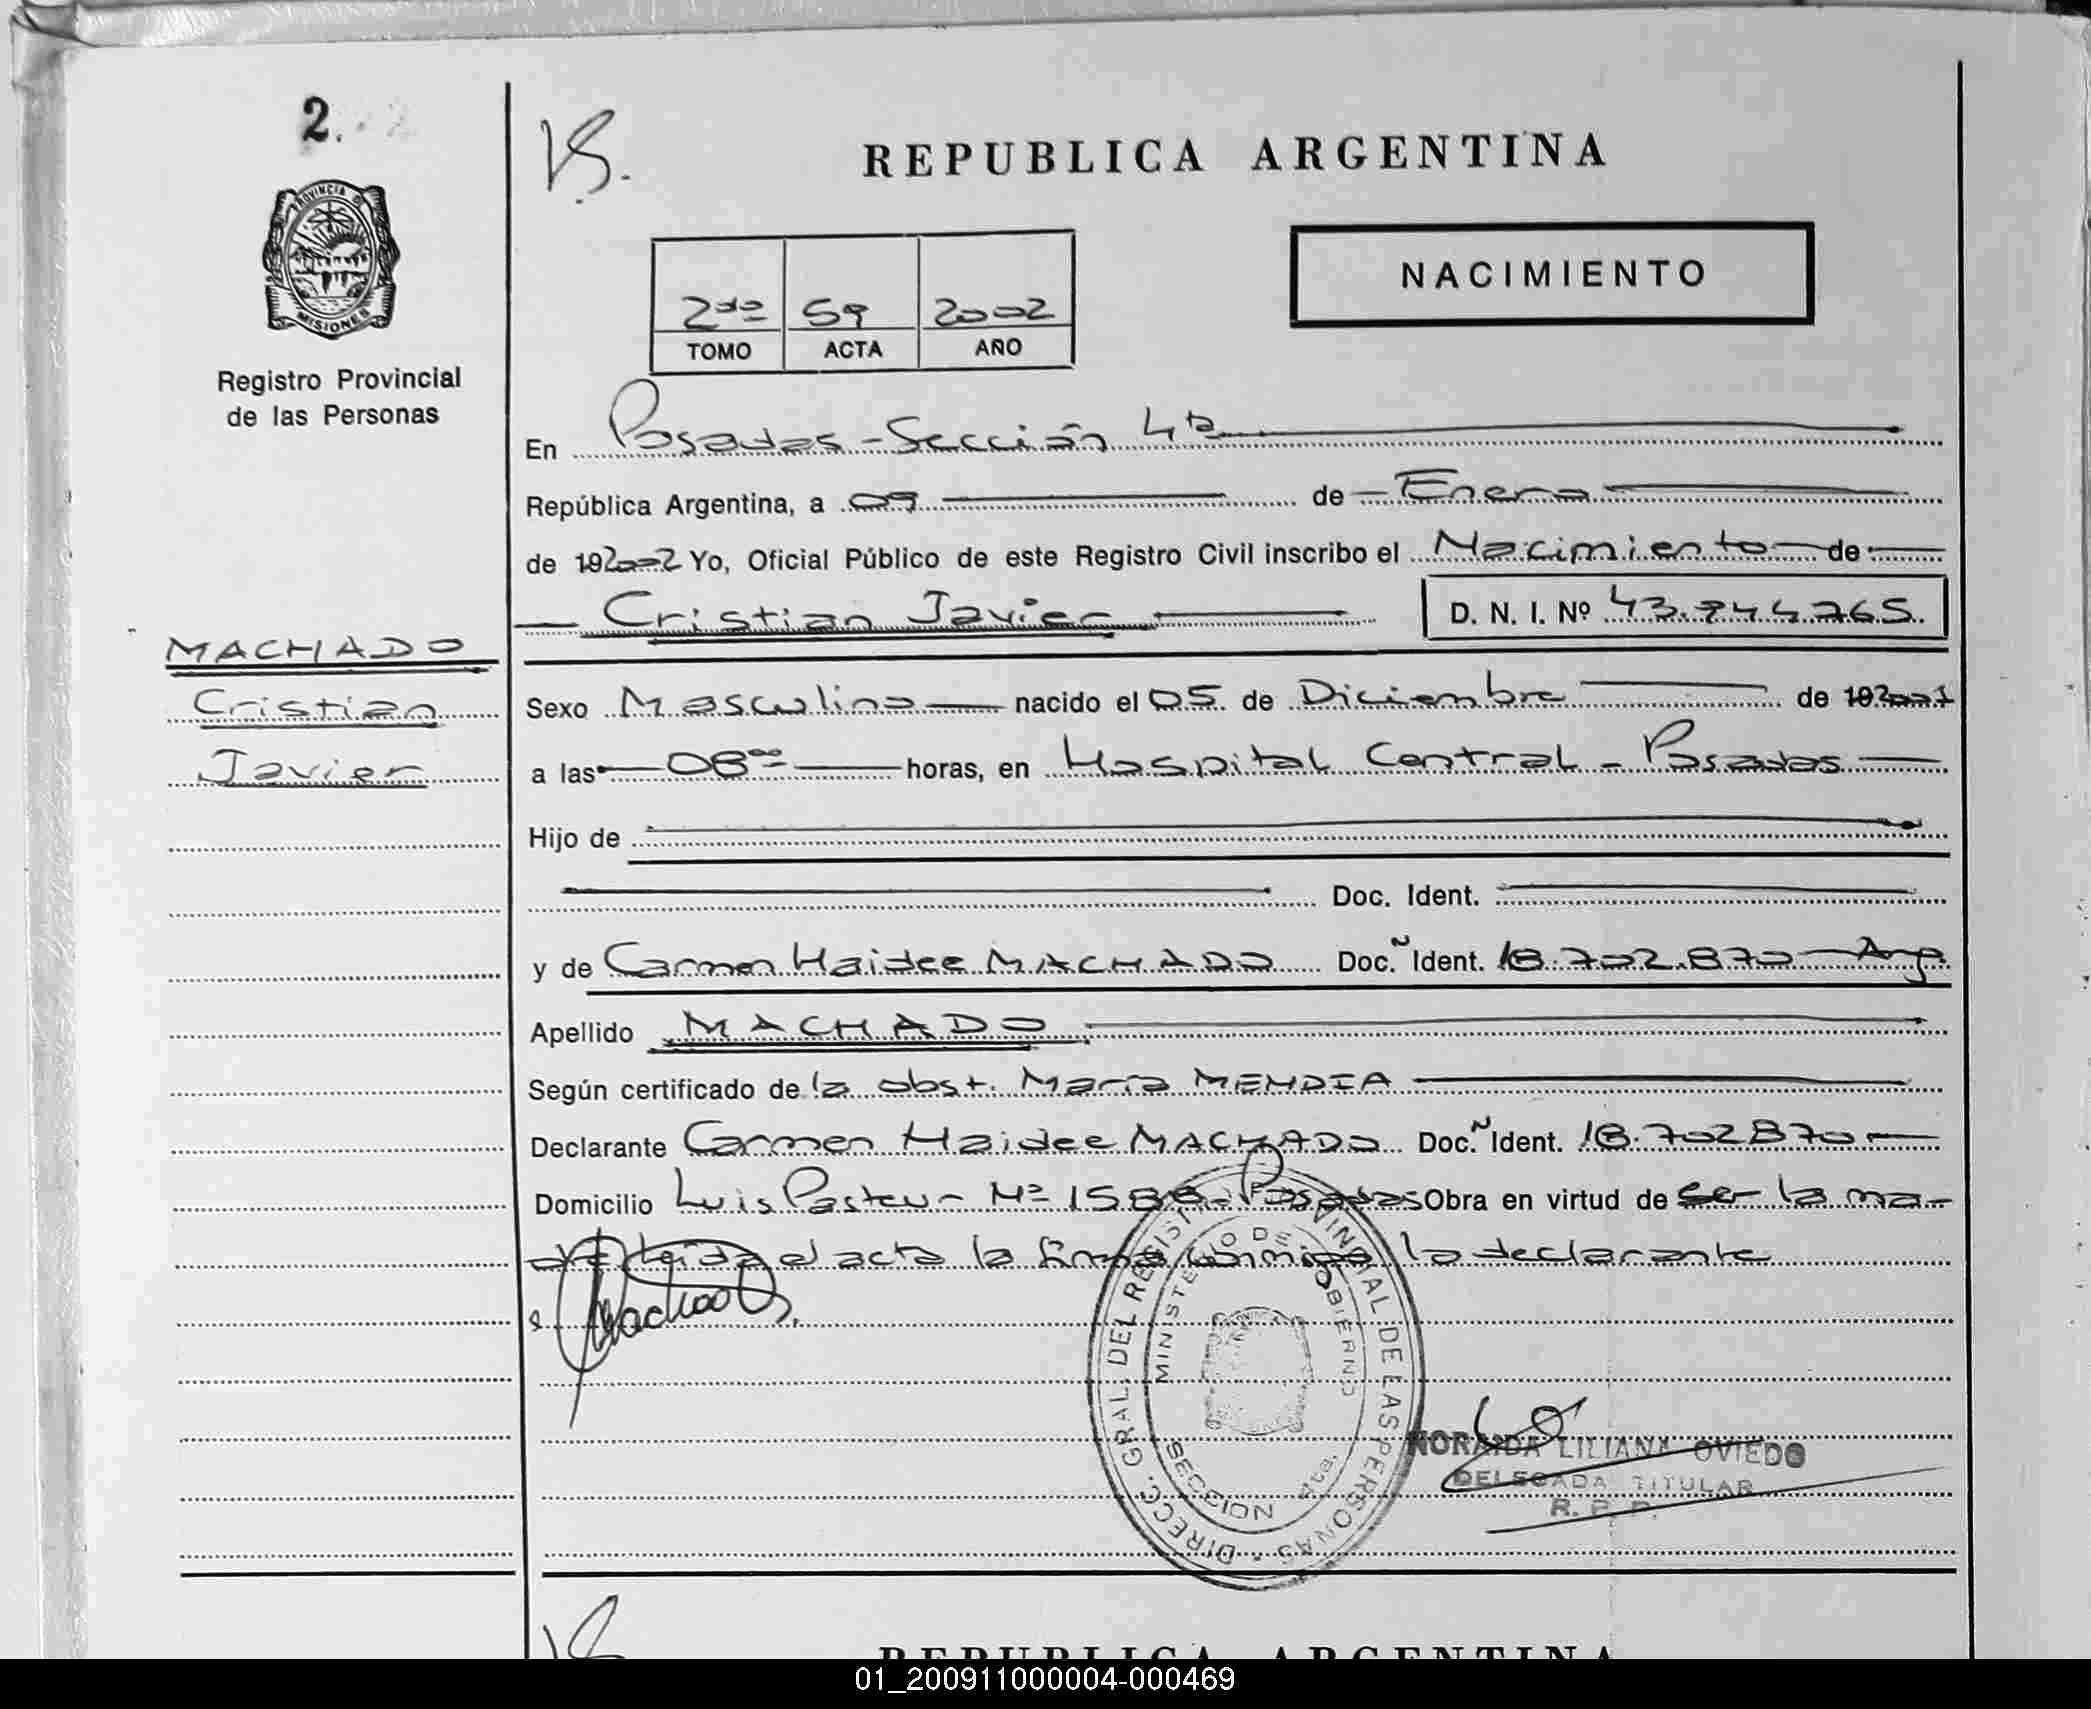 2.
VS.
REPUBLICA ARGENTINA
PROVINCIA DE
MISIONES
Registro Provincial
de las Personas
2do 59 2002
TOMO ACTA AÑO
NACIMIENTO
En Posadas - Sección 4ta
República Argentina, a 09 de Enero
de 192002 Yo, Oficial Público de este Registro Civil inscribo el Nacimiento de
Cristian Javier D. N. I. Nº 43.744.765.
MACHADO
Cristian
Javier
Sexo Masculino nacido el 05 de Diciembre de 192001
a las 08⁰⁰ horas, en Hospital Central - Posadas
Hijo de
Doc. Ident.
y de Carmen Haidee MACHADO Doc. Ident. 18.702.870 - Arg.
Apellido MACHADO
Según certificado de la obst. María MENDIA
Declarante Carmen Haidee MACHADO Doc. Ident. 18.702870
Domicilio Luis Pasteur Nº 1588 - Posadas Obra en virtud de ser la ma-
dre Leída el acta la firma conmigo la declarante
Machado
DIRECC. GRAL. DEL REGISTRO PROVINCIAL DE LAS PERSONAS
MINISTERIO DE GOBIERNO
SECCION 4ta.
NORAIDA LILIANA OVIEDO
DELEGADA TITULAR
R. P. P.
REPUBLICA ARGENTINA
01_200911000004-000469